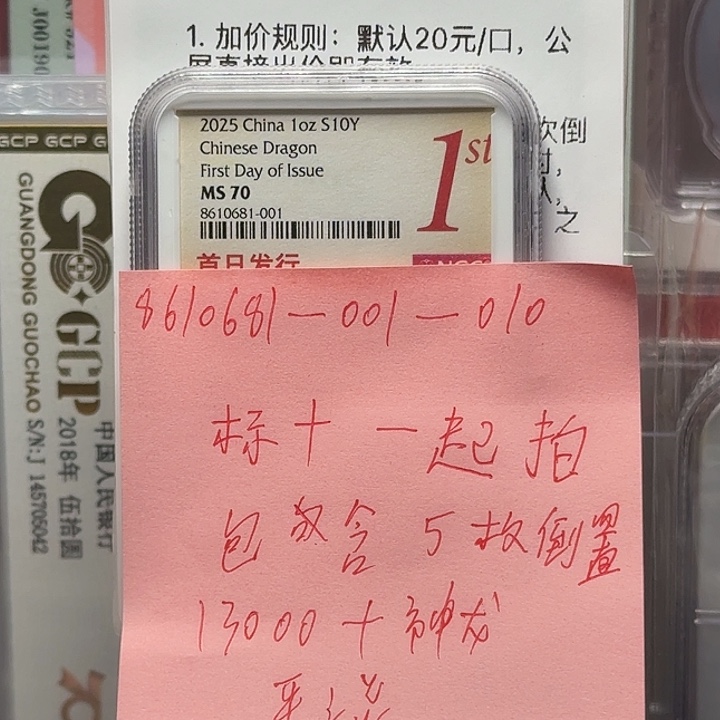 1. 加价规则：默认20元/口，公
2025 China 1oz S10Y
Chinese Dragon
First Day of Issue
MS 70
8610681-001
首日发行
1st
NGC
次倒
之
8610681—001—010
标十一起拍
包含5枚倒置
13000十神龙
GCP GCP G
GUANGDONG GUOCHAO
GCP
S/N:J 145705042
2018年 伍拾圆
中国人民银行
J00190